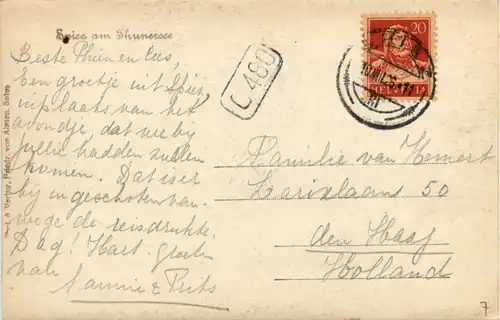 Spiez am Thunersee
Beste Phiin en Cees,
Een groetje uit Spiez,
in plaats van het
avondje, dat we bij
jullie hadden zullen
komen. Dat is er
bij ingeschoten van-
wege de reisdrukte.
Dag! Hart. groeten
van
Nannie & Frits
C 480
20
HELVETIA
Familie van Hemert
Laan 50
den Haag
Holland
& Verlag, von Almen, Spiez
7